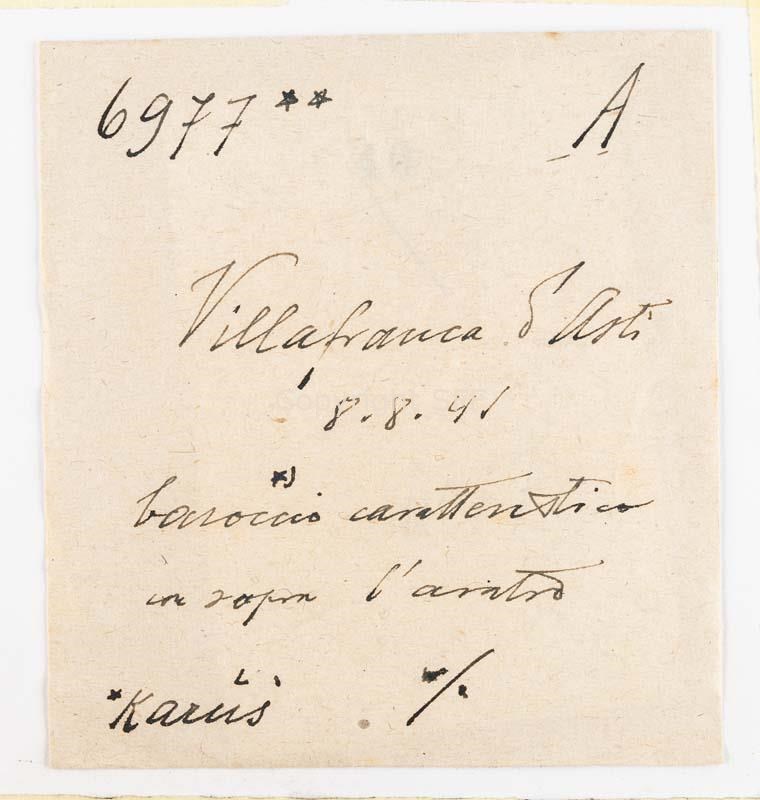 6977 ** A
Villafranca d'Asti
8.8.41
*)
baroccio caratteristico
con sopra l'aratro
*Karüs ./.